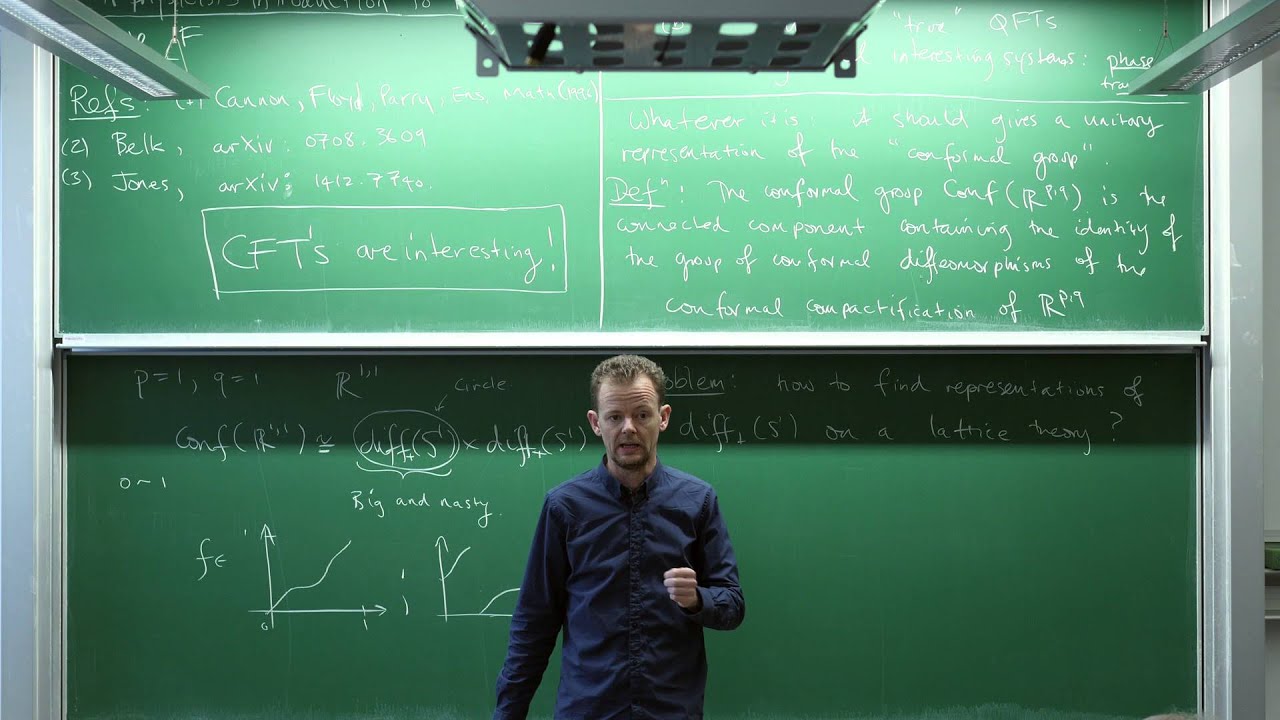 physicists introduction to
F
Refs: (1) Cannon, Floyd, Parry, Ens. Math (1996)
(2) Belk, arXiv: 0708.3609
(3) Jones, arXiv: 1412.7740.
CFT's are interesting!
"true" QFTs
interesting systems: phase
Whatever it is: it should gives a unitary
representation of the "conformal group".
Defⁿ: The conformal group Conf(ℝ^{p,q}) is the
connected component containing the identity of
the group of conformal diffeomorphisms of the
conformal compactification of ℝ^{p,q}
p=1, q=1 ℝ^{1,1} circle
Conf(ℝ^{1,1}) ≅ diff₊(S¹) × diff₊(S¹)
0 ~ 1
Big and nasty.
f ∈
1
0 1
oblem: how to find representations of
diff₊(S¹) on a lattice theory?